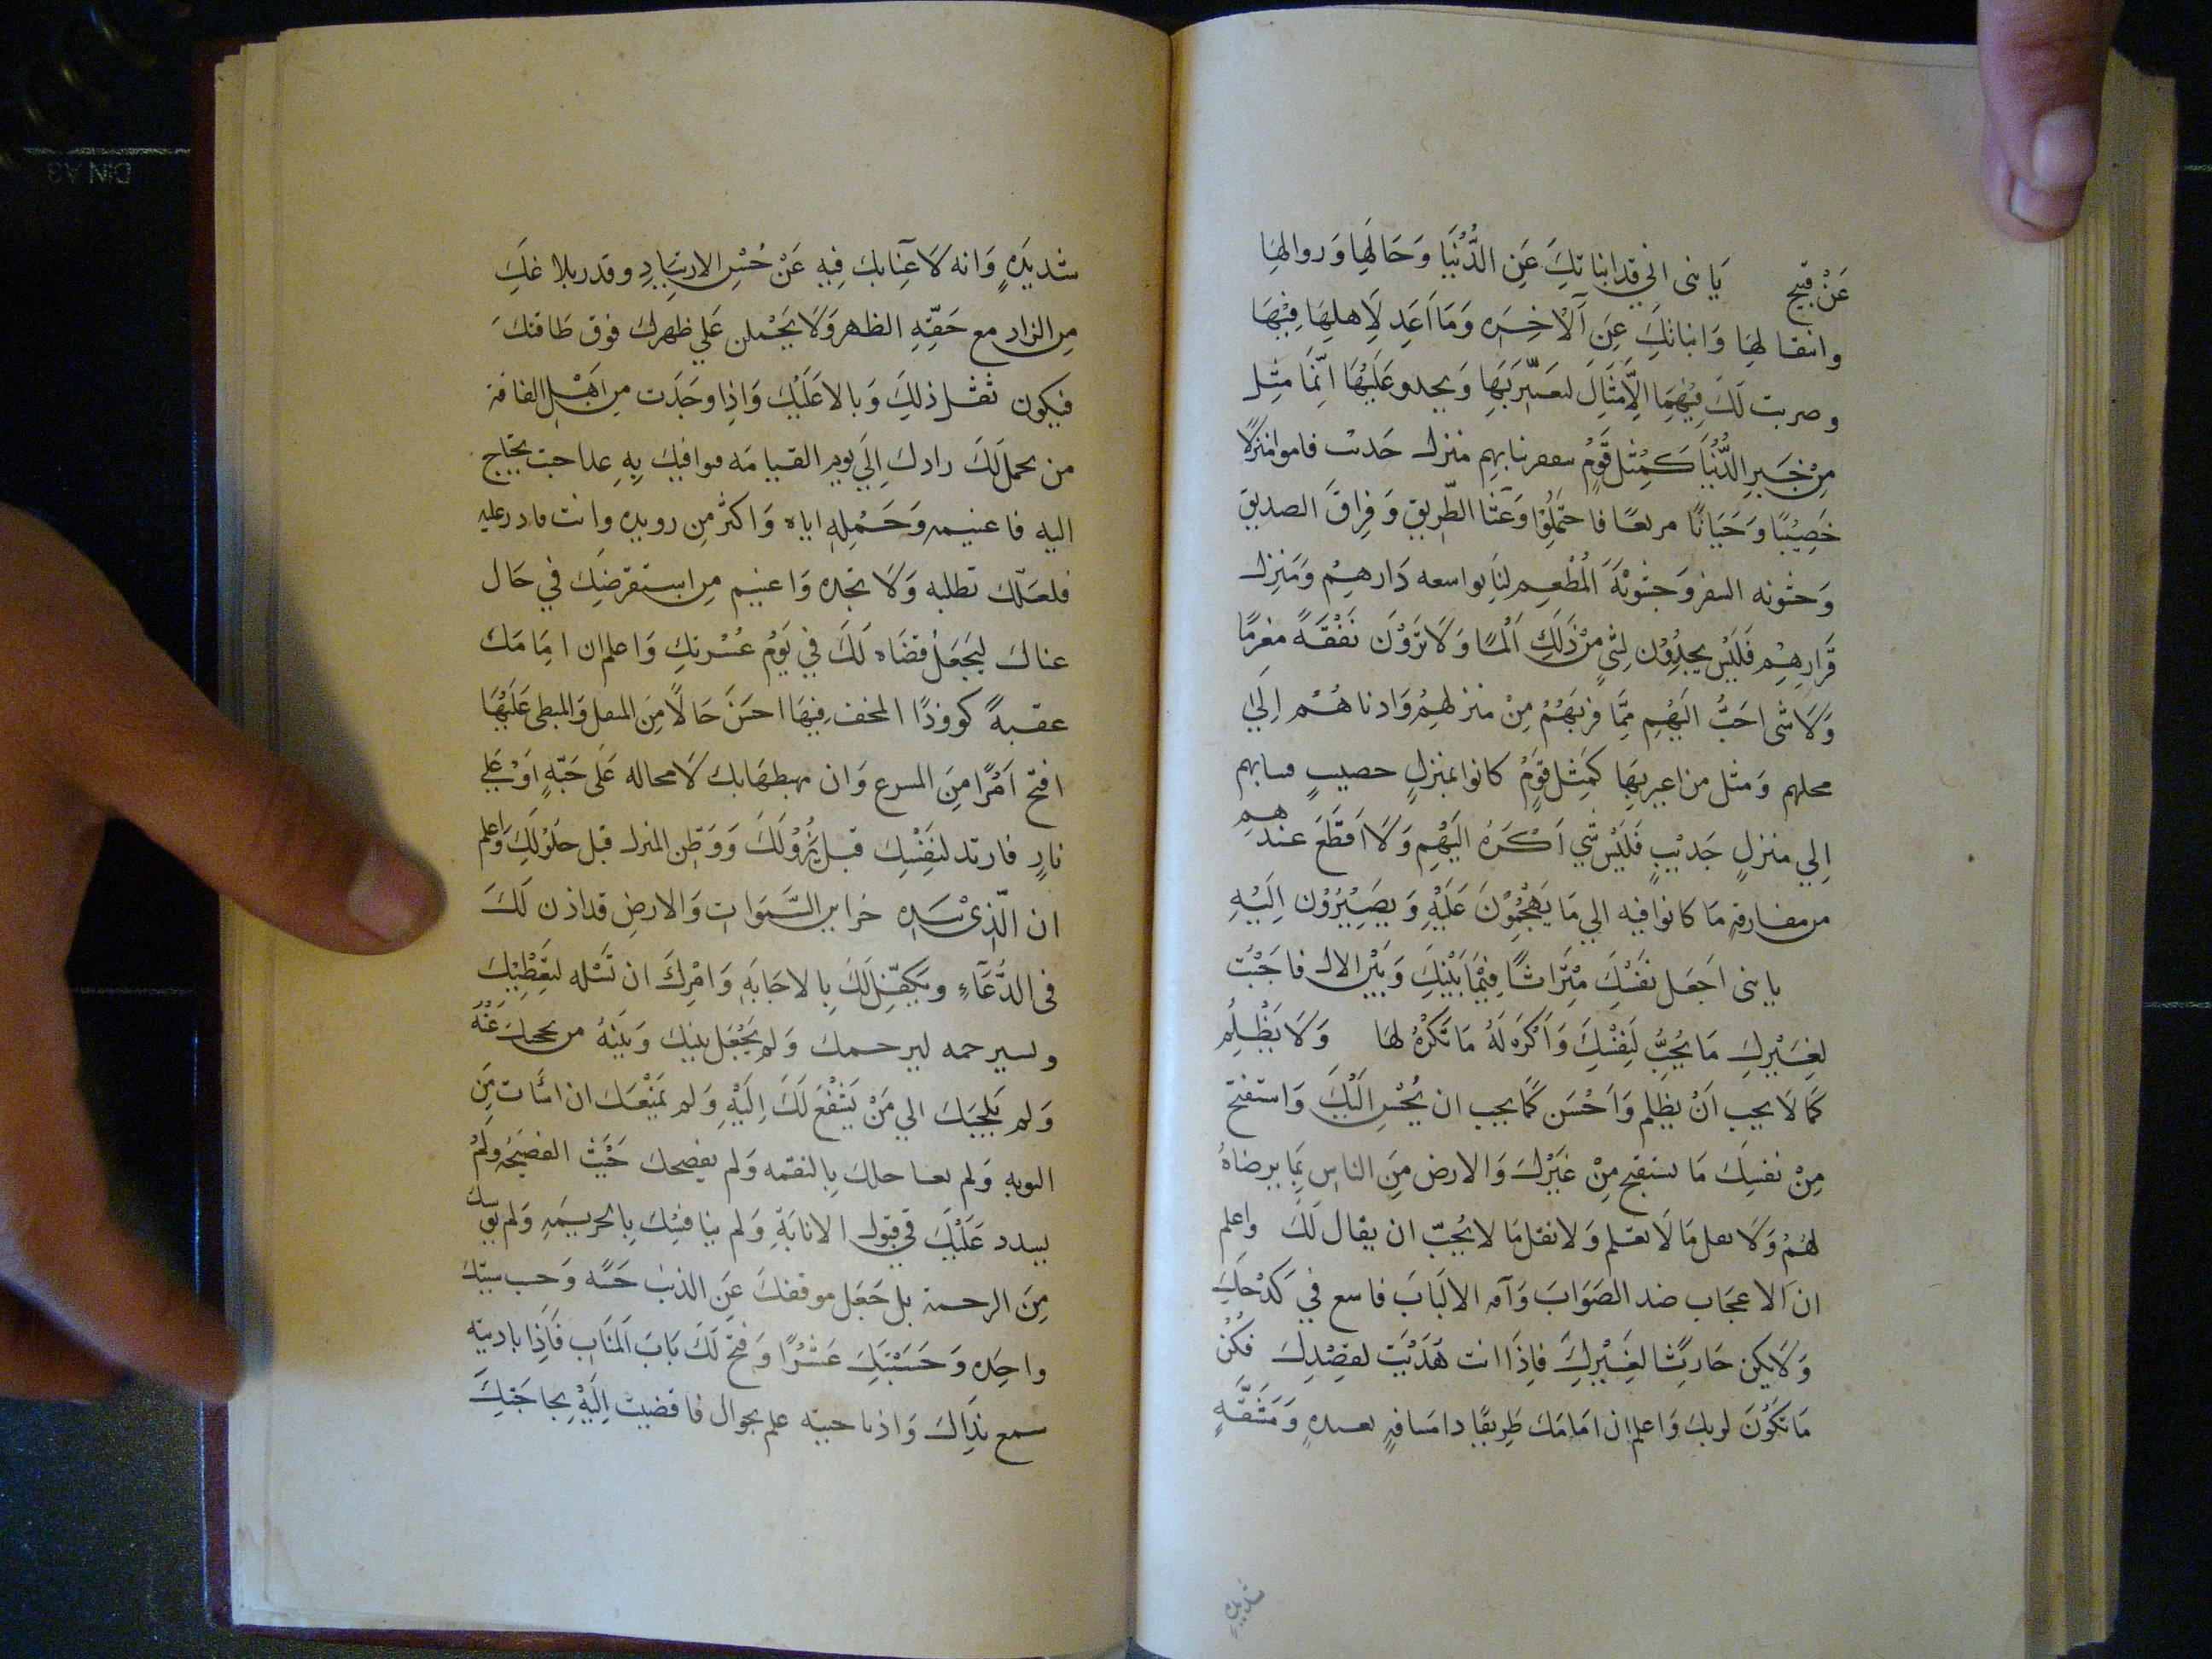 عَنْ قبيح يَا بنى اني قد انباتكَ عَنِ الدُّنْيَا وَحَالَهِا وَروالهِا
وانتقالهِا وَانباتكَ عَنِ الآخِرَه وَمَا اَعَد لِاَهلِهَا فِيْهَا
وصربت لَكَ فِيْهِمَا الِاَمْثَالَ لتعتبّر بَهَا وَيحدو عَلَيْهَا انِّمَا مثِل
مِنْ خَبرِ الدُّنْيَا كَمِثْل قَوْمٍ سفر نبا بهِم منزل جَدب فاموا منزلًا
خَصِيْبًا وَجَنَابًا مريعًا فاحتملُوْا وَعَثا الطّرِيقِ وَفِراقَ الصديق
وَخشونه السفر وَجشوْبَهَ المُطعِم لياَ‌تواسعه دَارهِمْ وَمَنِزل
قَرارِهِمْ فَلَيْسَ يجدُوْن لِشيٍ مِنْ ذلَكِ اَلمًا وَلَا تَرَوْنَ نَفْقَةً مغرمًا
وَلَا شى احَبُّ اليَهِم مِمَّا قربَهُمْ مِنْ منزلهِمْ وَادناهُمْ اِلَىٰ
محلهم وَمثل من اعبر بهِا كَمَثِل قوَمٍ كانوا بمنِزلٍ حصيبٍ فنبا بهم
اِلي منزلٍ جَديْبٍ فَلَيْسَ شي اَكْرَهُ اليَهْمِ وَلَا اَفظَعَ عندهم
من مفارقةِ مَا كانوا فيه الي مَا يَهْجُمُوْنَ عَلَيْهِ وَيصَيِرُوْن اِلَيْهِ
يا بنى اَجعَل نفَسْكَ مِيْزَاناً فِيْمَا بَيْنِكَ وَبَيْن الاك فاجْبَت
لغَيْركِ مَا يُحِبُّ لَنِفْسْكَ وَاَكْرَه لَهُ مَا تكْرَهُ لهَا وَلَا يَظْلِم
كَمَا لَا يحب اَنْ يظَلِم وَاَحْسَن كَمَا يحب ان يُحْسَن اليَكَ وَاستقبح
مِنْ نفسِكَ مَا يستقبح مِنْ غيَرْكَ وَالارض مِنَ الناسِ بمَا يرضاهُ
لهَمُ وَلَا تعل مَا لَا تعَلم وَلا نقل مَا لا يُحِبّ ان يقال لَكَ واعلم
ان الاعجَاب ضد الصَوَابَ وَآفه الالَبابَ فاسع في كَدْحِكَ
وَلَا يكن حَارنًا لغَيْركَ فاِذَا انت هُدَيْتَ لقصْدِكَ فكُنْ
مَا تكَوْنَ لربك وَاعلم ان امَامَك طَريقًا دا مَسَافهٍ بعيدهٍ وَمَشَقَّهٍ
شَديدٍه
شديدَهٍ وَانه لَا غِنَا بك فِيهِ عَنْ حُسْنِ الارتِيَادِ وقدر بلاغكَ
مِن الزاد مع خَفّهِ الظهر وَلَا يَحْملن عَلي ظهرك فوق طَاقتكَ
فيكون ثقل ذلِكَ وَبالا عَليْكَ وَاذِا وجَدَت مِن اَهْل الفاقة
من يحمل لَكَ رادكَ اِلَىَ يوم القيامَه فيوافيك بِهِ غدا حيت يحتاج
اليه فاغنيمه وَحَمْلِه اياه وَاكثْر مِن رويده وانت قادر عليه
فلعَلّك تطلبه وَلَا تجده وَاغنيم مِن استقرضكَ في حَال
غناك لِيَجعَلَ قضَاه لَكَ في يَوْمُ عُسْرتكِ وَاعلم ان امِامَك
عقبهً كووذًا المخف فِيهَا احسَنَ حَالًا مِنَ المثعل وَالمبطى عَلَيْهَا
اقبح اَمْرًا مِنَ المسرع وَان مهبطهَا بك لَا محاله عَلَى جَنّهٍ اَوْ عَلَي
نارٍ فارتد لنِفَسْكَ قبل نُزُوْلَكَ وَوَطِن المنزل قبل حَلوْلَكِ وَاعلم
ان الّذِىْ بيَدهِ خزاين السَّموَات وَالارض قد اذن لَكَ
فى الدَّعَآءِ وَتكَفّل لكَ بِالاجَابَه وَامْرِكَ ان تَسْله ليِعَطِيْكَ
وتسيرحمه ليرحمك وَلم يَجْعَل بينكَ وَبَيَنْهُ من يحجبكَ عَنْهُ
وَلم يَلجيكَ الي مَنْ يَشْفَعُ لَكَ اِلَيْهِ وَلم يمنَعْك ان اسَات مِنَ
التوبه وَلم يعَاحلك بِالنقمه وَلم يفصحك حَيْث الفضيَحه وَلمُ
يسدد عَلَيْكَ في قبول الانابَةِ وَلم ينا قشِكَ بِالجريمَهِ وَلم يوسك
مِنَ الرحمة بل حَعَل موقفكَ عَنِ الذنب حَسَنَه وَحسب سيتِكَ
واحِده وَحَسَنَتِكَ عَشْرًا وَفتح لَكَ بَابَ المَتابِ فَاِذَا باديته
سمع نِدَاكَ وَاذنا حيته علم بجوال فاقضيت اِليَهْ بِحاجَتِكَ